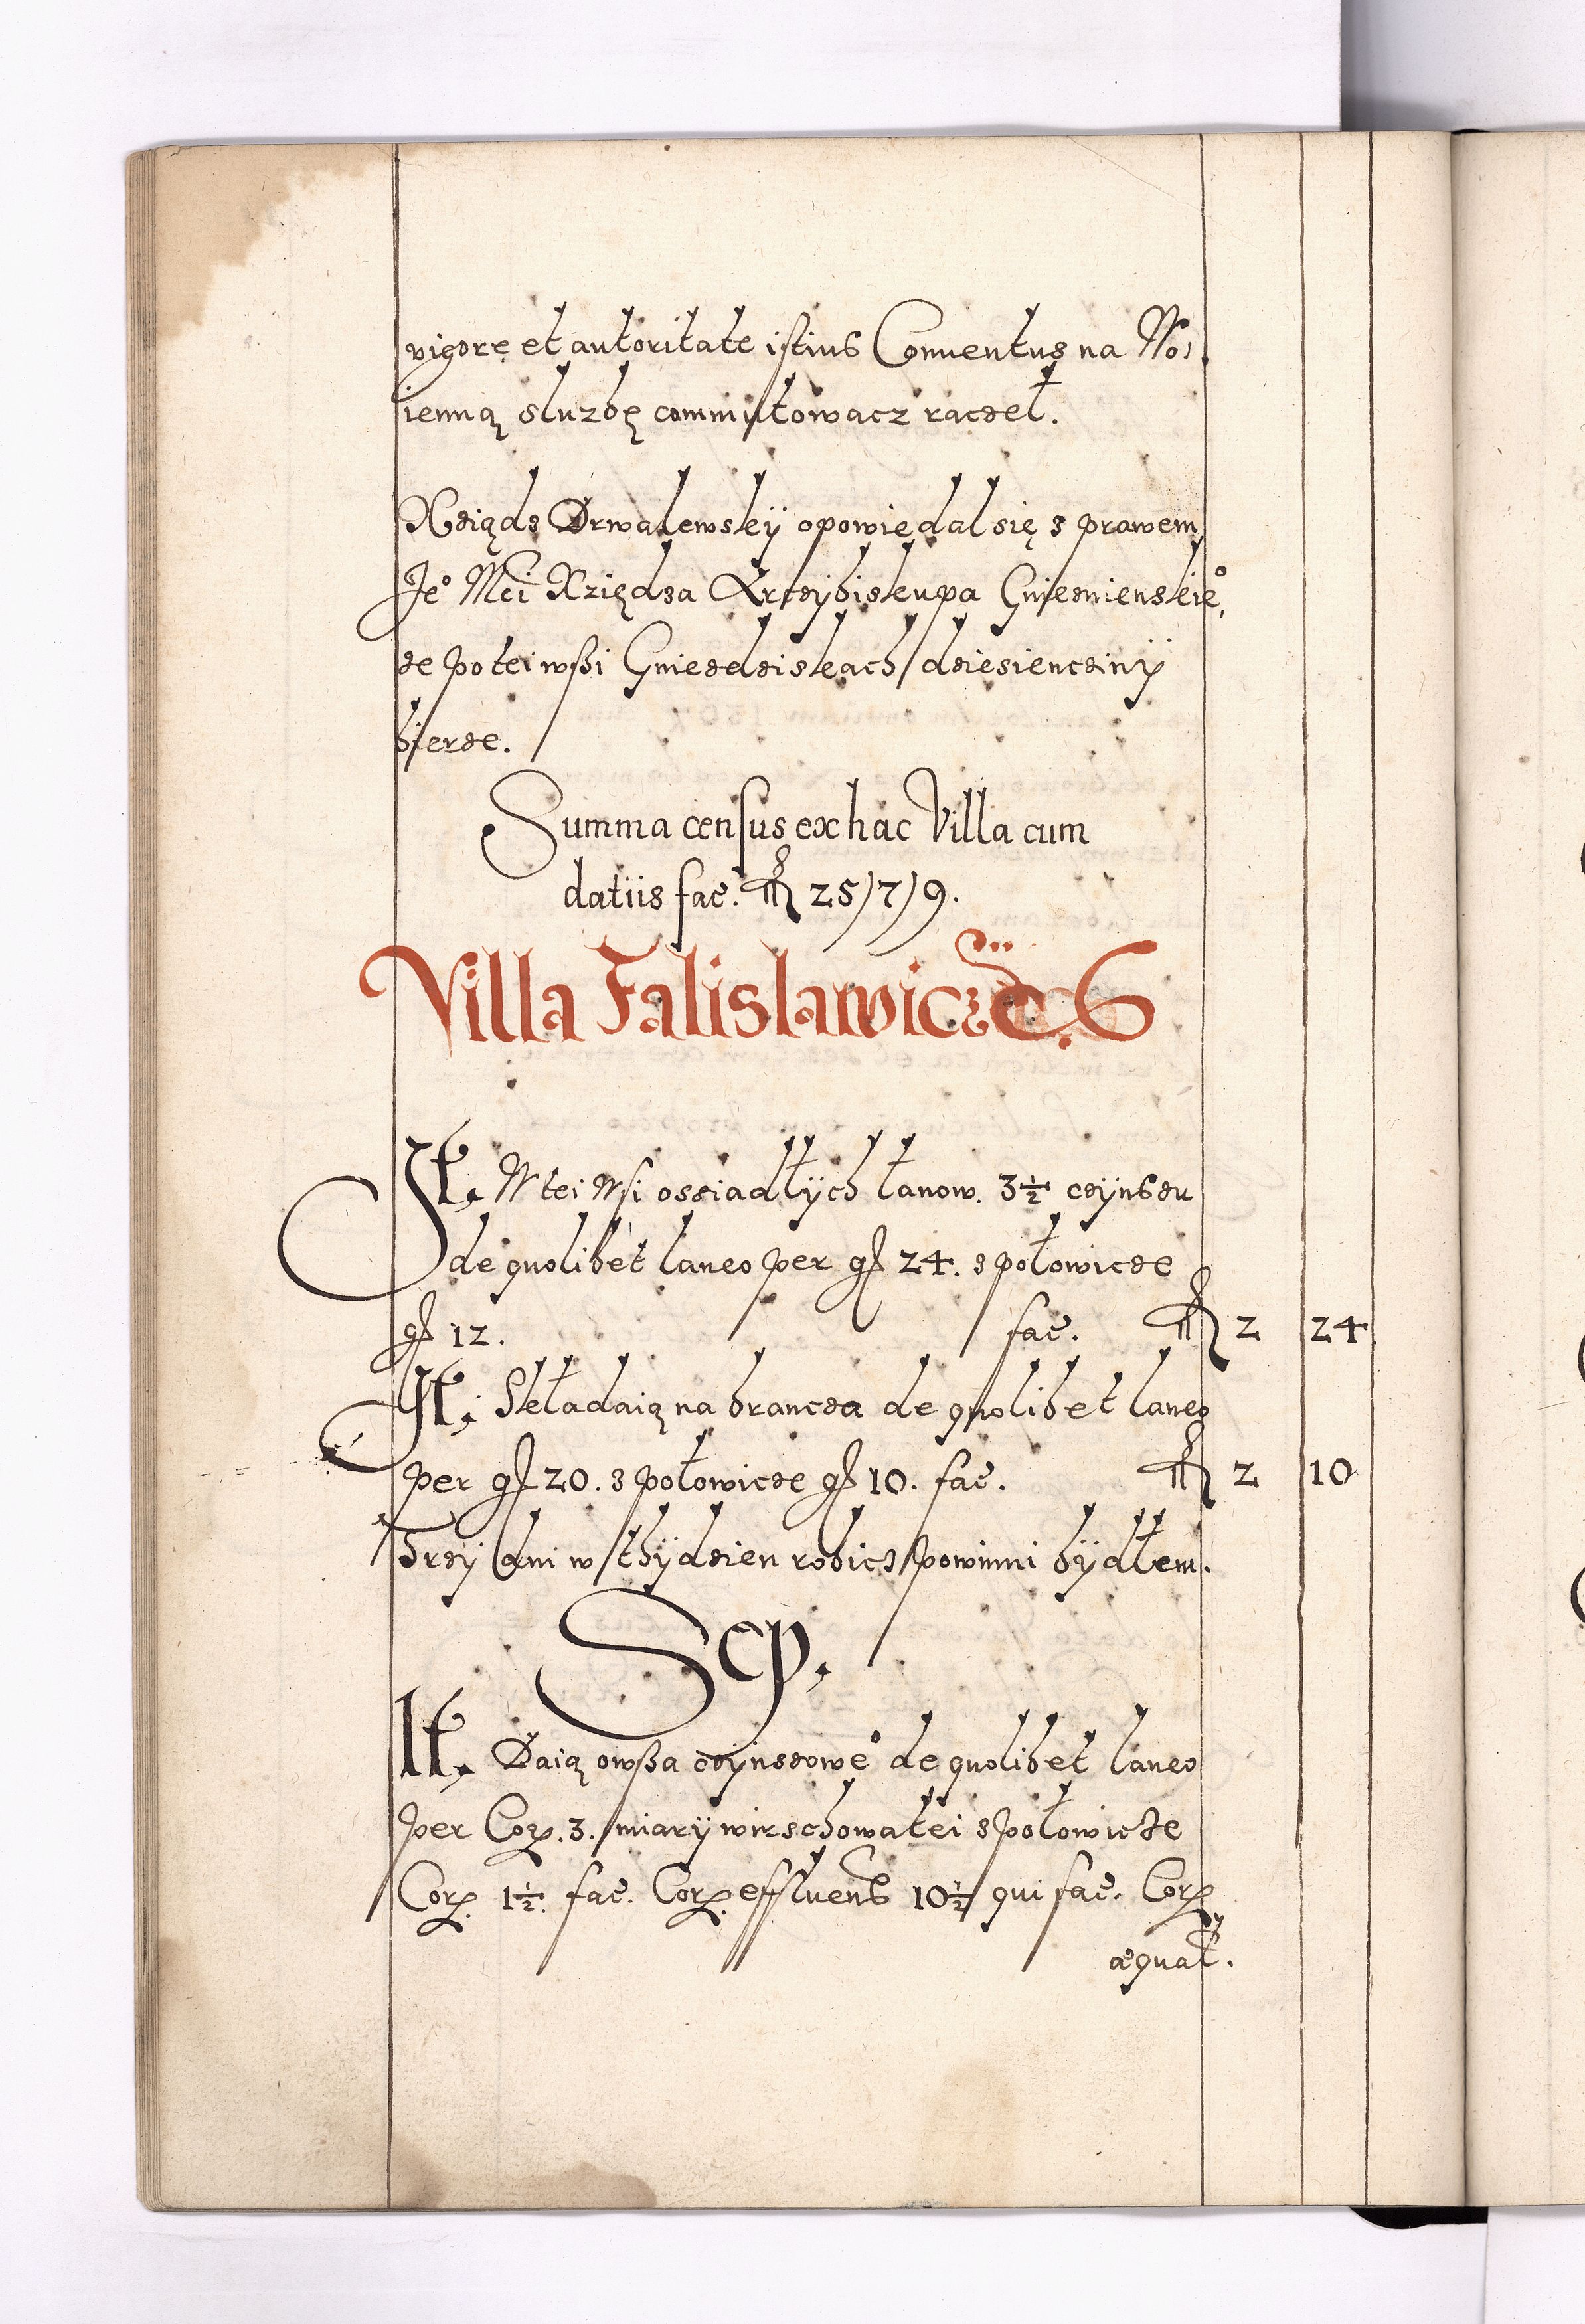 vigore et autoritate istius Conventus na Wo⸗
ienną sluzbę commutowacz raczeł.
Xsiądz Drwalewskÿ opowiedal się z prawem
Je° Mci Xziędza Arczÿbiskupa Gnieznienskie°,
ze po tei wßi Gniezdziskach dziesienczinÿ
bierze.
Summa census ex hac Villa cum
datiis fac. 25/7/9.
Villa Falislawicze 6
It. W tei Wsi ossiadłÿch łanow. 3½ czÿnszu
de quolibet laneo per gr 24. z połowicze
gr 12. fac. 2 24
It. Składaią na brancza de quolibet laneo
per gr 20. z połowicze gr 10. fac. 2 10
Trzÿ dni w thÿdzien robicz powinni bÿdłem.
Sep.
It. Daią owßa czÿnszowe° de quolibet laneo
per Cor. 3. miarÿ wirzchowatei z połowicze
Cor. 1½. fac. Cor. effluens 10½ qui fac. Cor.
æquał.